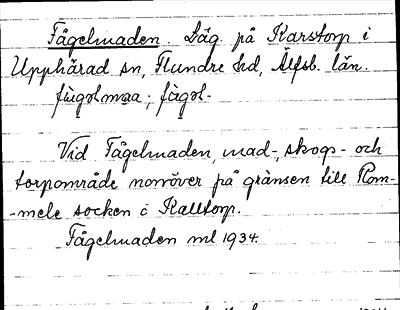 Fågelmaden. Läg. på Karstorp i
Upphärad sn, Flundre hd, Älfsb. län.
fùgəlmaa; fùgəl-
Vid Fågelmaden, mad-, skogs- och
torpområde norröver på gränsen till Rom-
-mele socken i Kalltorp.
Fågelmaden ml 1934.